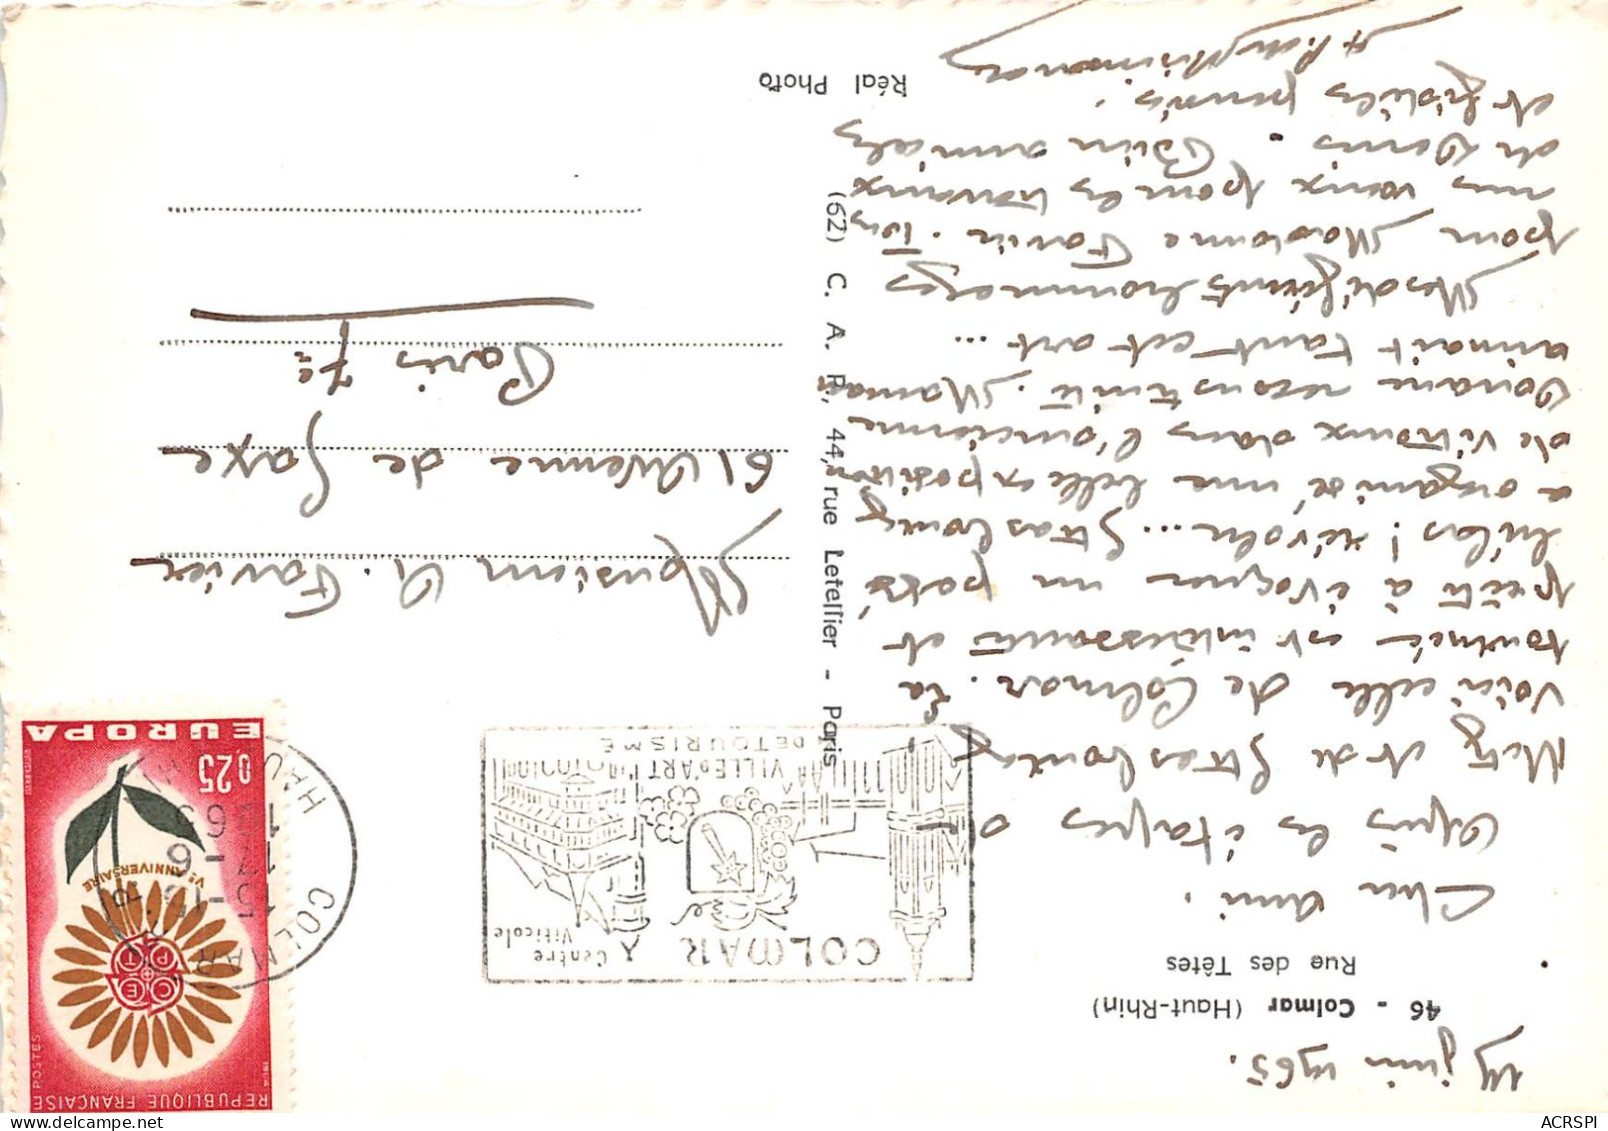 46 - Colmar (Haut-Rhin)
Rue des Têtes
17 juin 1965.
Cher ami.
Après les étapes de
Metz et de Strasbourg
voici celle de Colmar. La
tournée est intéressante et
prête à évoquer un passé
hélas! révolu... Strasbourg
a organisé une belle exposition
de vitraux dans l'ancienne
Douane reconstruite. Maman
aimait tant cet art...
Mes déférents hommages
pour Madame Favier. Tous
mes vœux pour les travaux
de Denis. Bien amicales
et fidèles pensées.
Réal Photo
(62) C. A. P., 44, rue Letellier - Paris
COLMAR
Centre
Viticole
VILLE d'ART
DE TOURISME
COLMAR R.P.
15 H
17 - 6
1965
HAUT RHIN
REPUBLIQUE FRANÇAISE
POSTES
1964
CEPT
Ve ANNIVERSAIRE
0,25
EUROPA
Monsieur A. Favier
61 Avenue de Saxe
Paris 7e
ACRSPI